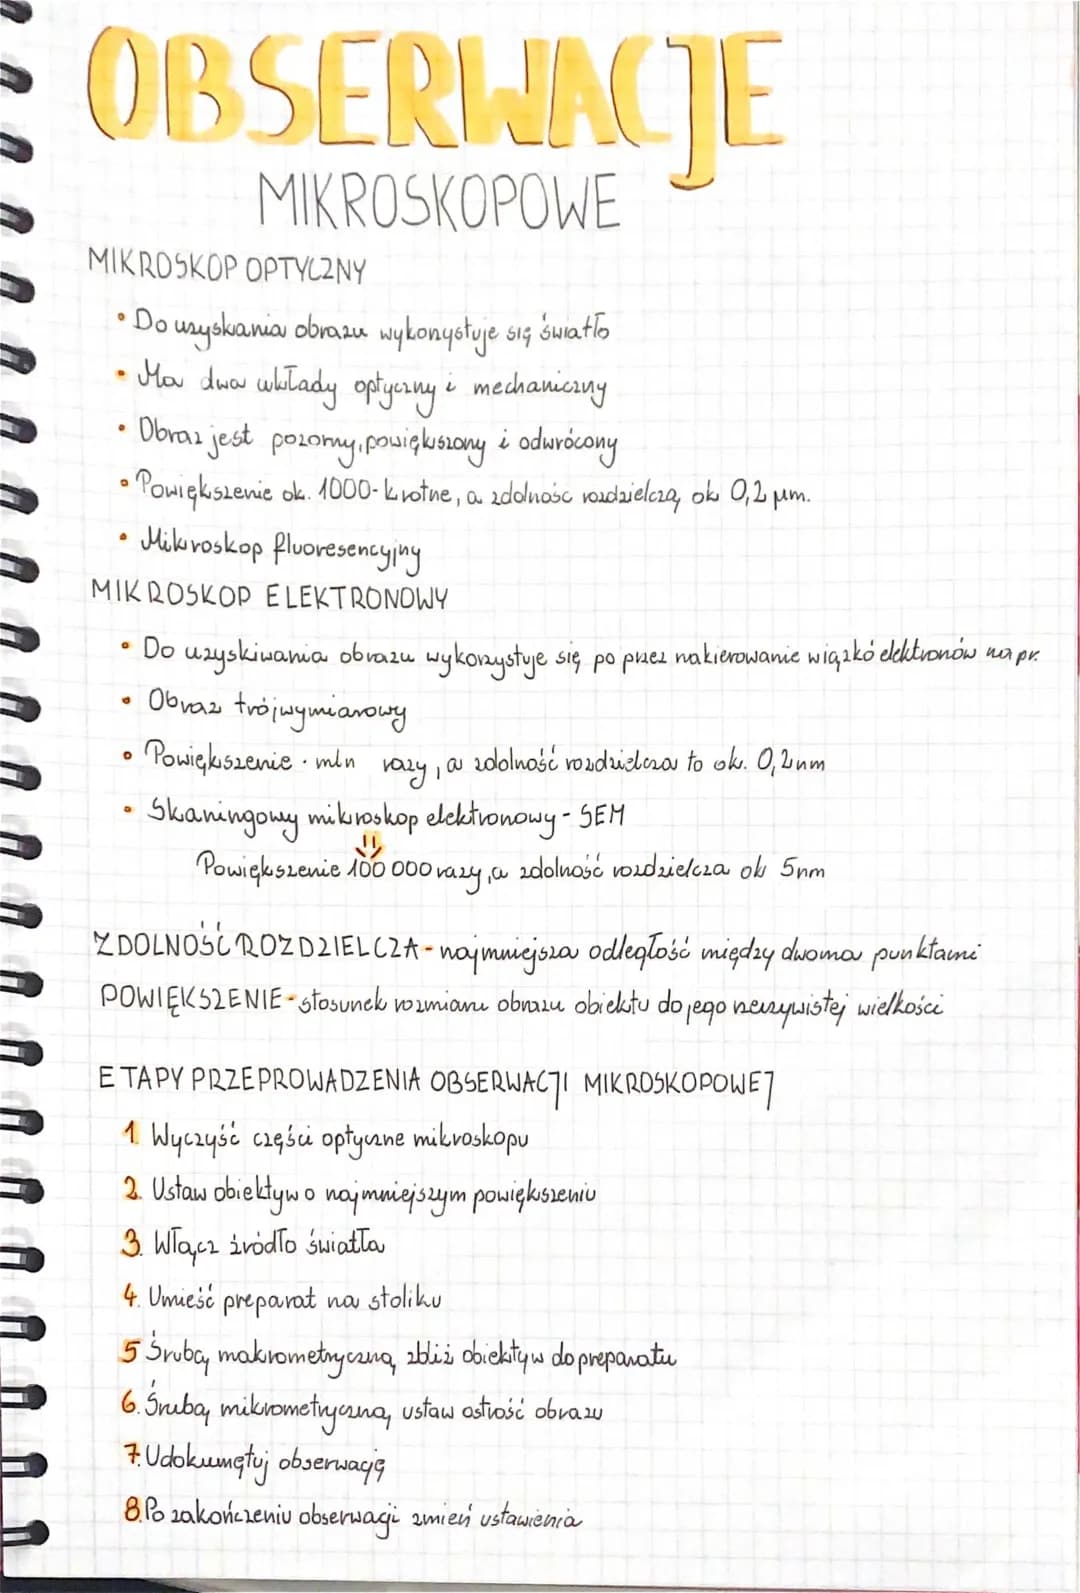 OBSERWACJE
MIKROSKOPOWE
MIKROSKOP OPTYCZNY
• Do uzyskania obrazu wykorzystuje się światło
• Ma dwa układy optyczny i mechaniczny
• Obraz jest pozorny, powiększony i odwrócony
• Powiększenie ok. 1000-krotne, a zdolność rozdzielczą ok 0,2 μm.
• Mikroskop fluoresencyjny
MIKROSKOP ELEKTRONOWY
• Do uzyskiwania obrazu wykorzystuje się po przez nakierowanie wiązkó elektronów na pr.
• Obraz trójwymiarowy
• Powiększenie · mln razy, a zdolność rozdzielcza to ok. 0,2nm
• Skaningowy mikroskop elektronowy - SEM
Powiększenie 100 000 razy, a zdolność rozdzielcza ok 5nm
ZDOLNOŚĆ ROZDZIELCZA - najmniejsza odległość między dwoma punktami
POWIĘKSZENIE - stosunek rozmiaru obrazu obiektu do jego rzeczywistej wielkości
ETAPY PRZEPROWADZENIA OBSERWACJI MIKROSKOPOWEJ
1. Wyczyść części optyczne mikroskopu
2. Ustaw obiektyw o najmniejszym powiększeniu
3. Włącz źródło światła
4. Umieść preparat na stoliku
5 Śrubą makrometryczną zbliż obiektyw do preparatu
6. Śrubą mikrometryczną ustaw ostrość obrazu
7. Udokumętuj obserwację
8. Po zakończeniu obserwacji zmień ustawienia